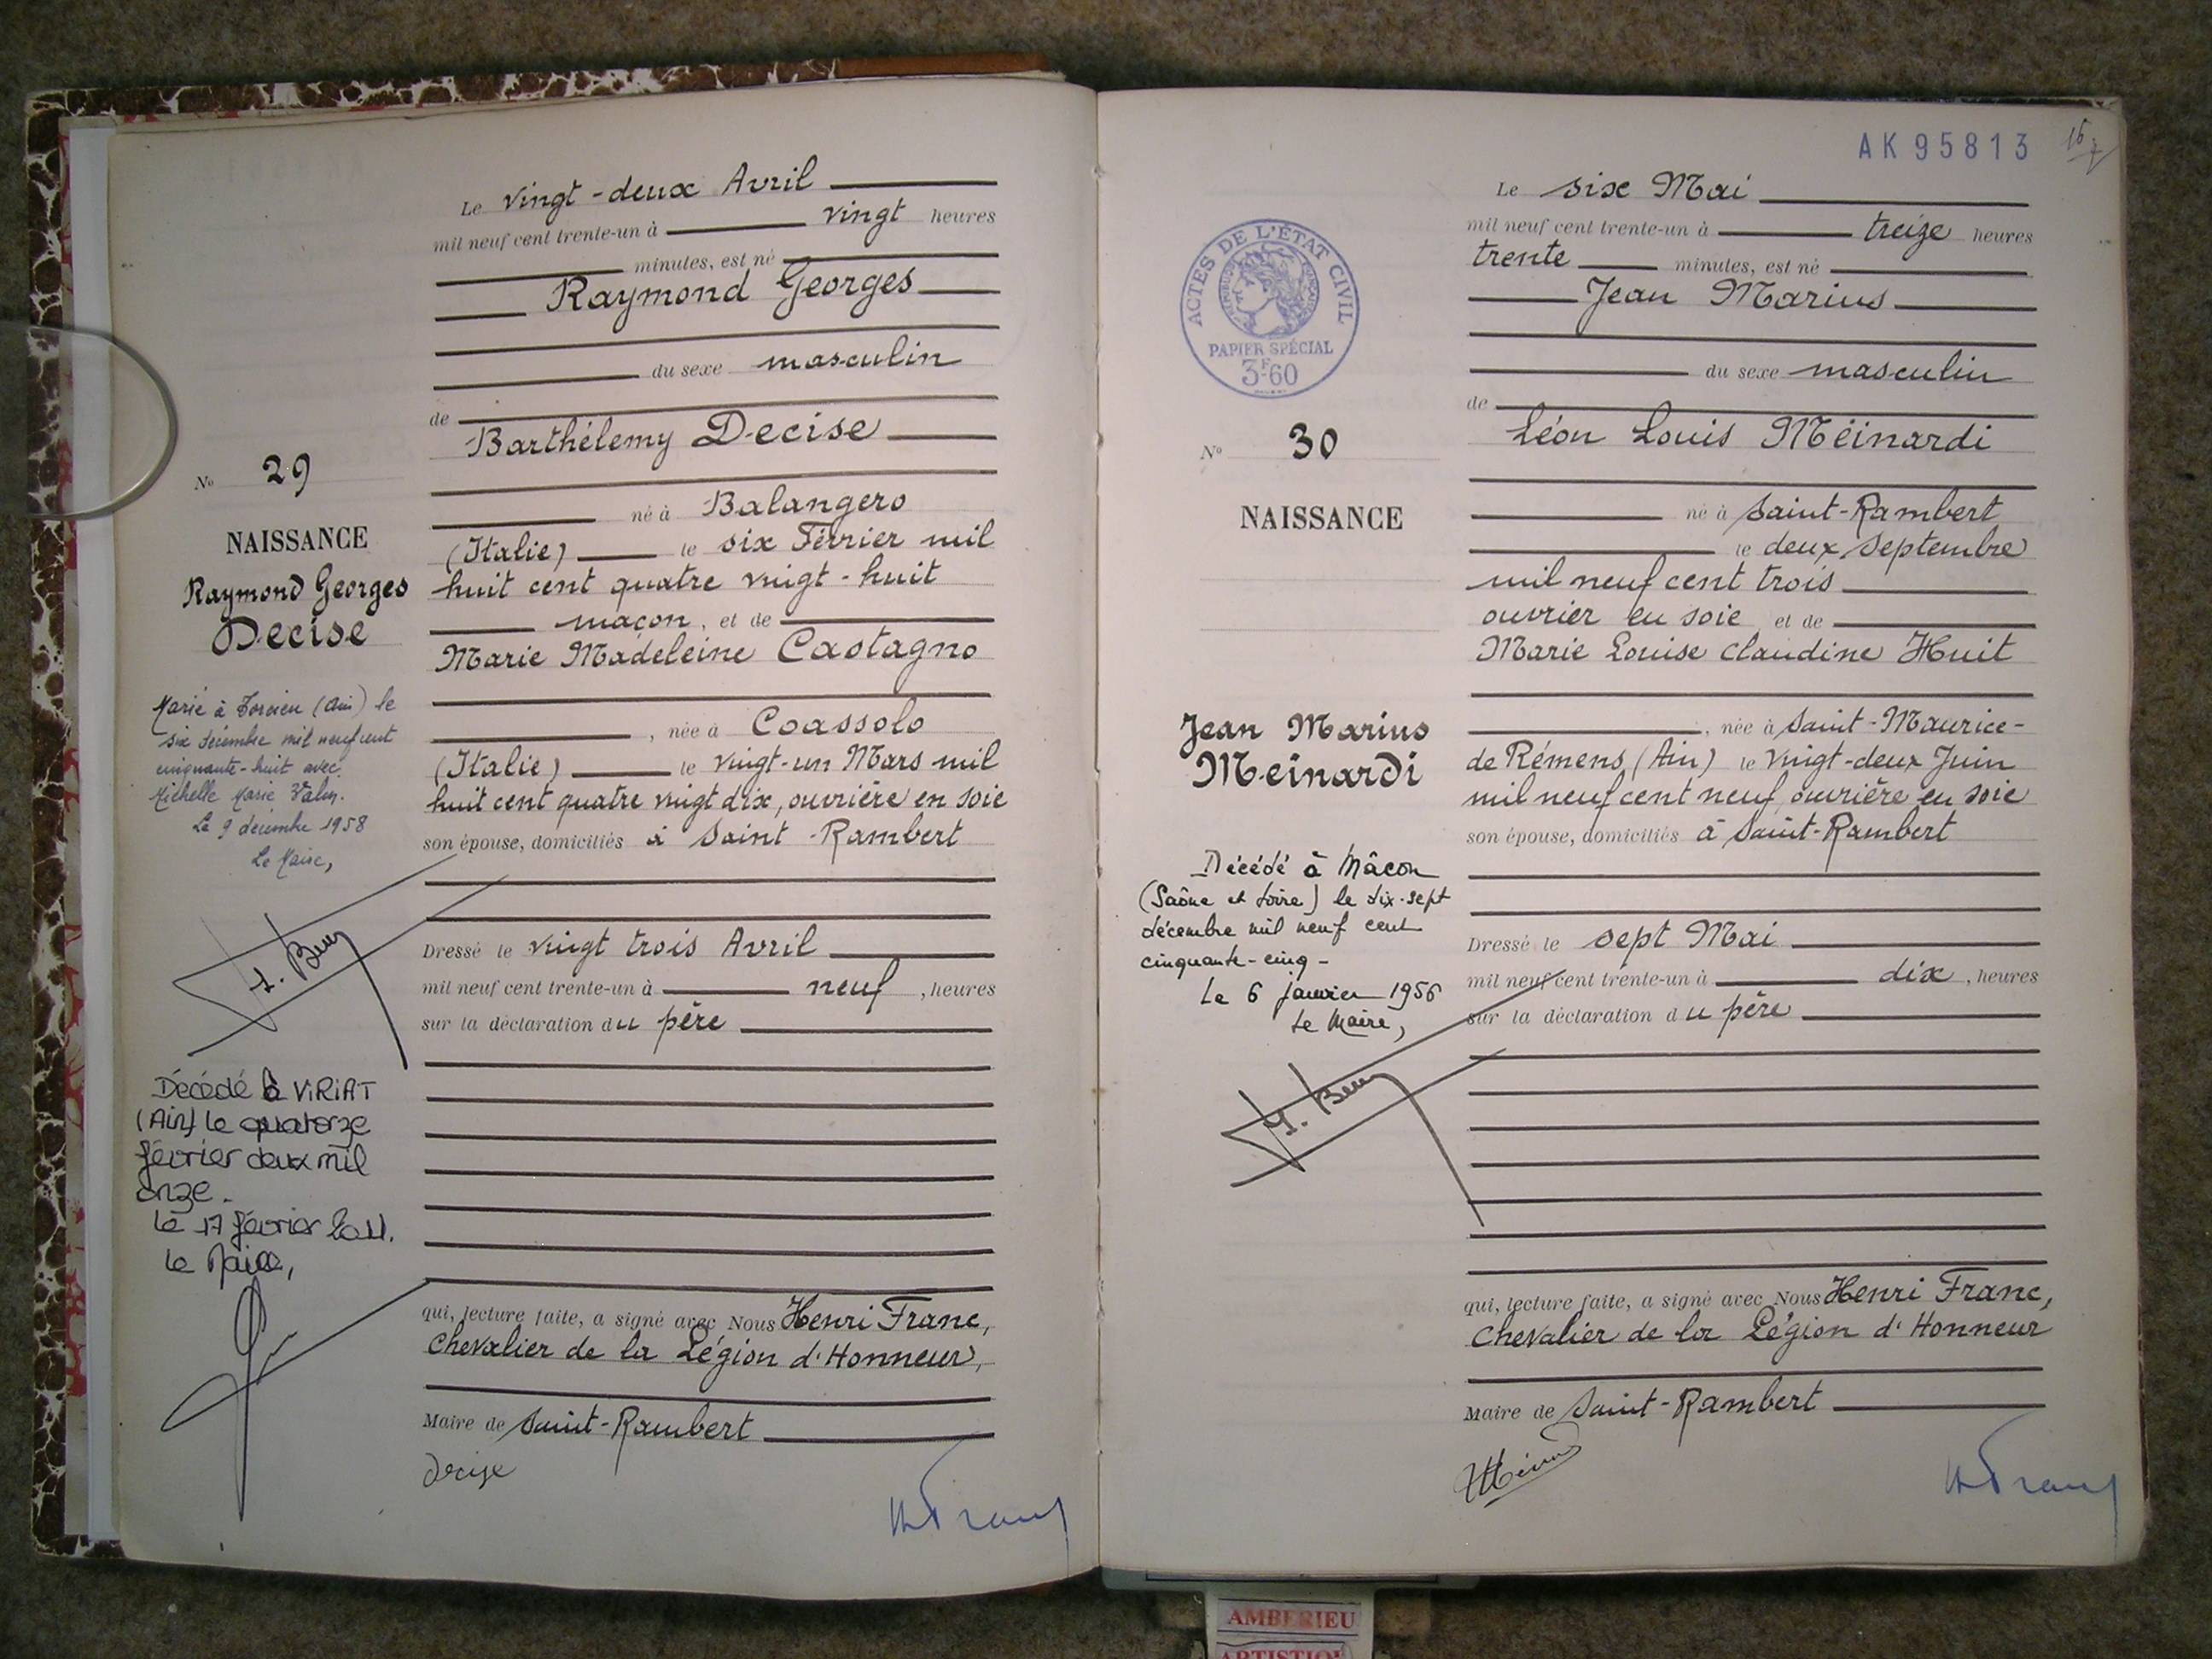 Le vingt-deux Avril
mil neuf cent trente-un à vingt heures
minutes, est né
Raymond Georges
du sexe masculin
de
Barthélemy Decise
né à Balangero
(Italie) le six Février mil
huit cent quatre vingt-huit
maçon, et de
Marie Madeleine Castagno
, née à Coassolo
(Italie) le vingt-un Mars mil
huit cent quatre vingt dix, ouvrière en soie
son épouse, domiciliés à Saint-Rambert
Dressé le vingt trois Avril
mil neuf cent trente-un à neuf, heures
sur la déclaration du père
qui, lecture faite, a signé avec Nous Henri Franc,
Chevalier de la Légion d'Honneur,
Maire de Saint-Rambert
Decise
HFranc
No 29
NAISSANCE
Raymond Georges
Decise
Marié à Torcieu (Ain) le
six décembre mil neuf cent
cinquante-huit avec
Michelle Marie
Le 9 décembre 1958
Le Maire,
Décédé à VIRIAT
(Ain) le quatorze
février deux mil
onze.
Le 17 février 2011.
Le Maire,
AK 95813
ACTES DE L'ÉTAT CIVIL
PAPIER SPÉCIAL
3F60
Le six Mai
mil neuf cent trente-un à treize heures
trente minutes, est né
Jean Marius
du sexe masculin
de
Léon Louis Méinardi
né à Saint-Rambert
le deux Septembre
mil neuf cent trois
ouvrier en soie et de
Marie Louise Claudine Huit
, née à Saint-Maurice-
de Rémens (Ain) le vingt-deux Juin
mil neuf cent neuf, ouvrière en soie
son épouse, domiciliés à Saint-Rambert
Dressé le sept Mai
mil neuf cent trente-un à dix, heures
sur la déclaration du père
qui, lecture faite, a signé avec Nous Henri Franc,
Chevalier de la Légion d'Honneur
Maire de Saint-Rambert
HFranc
No 30
NAISSANCE
Jean Marius
Meinardi
Décédé à Mâcon
(Saône et Loire) le dix-sept
décembre mil neuf cent
cinquante-cinq-
Le 6 janvier 1956
Le Maire,
AMBERIEU